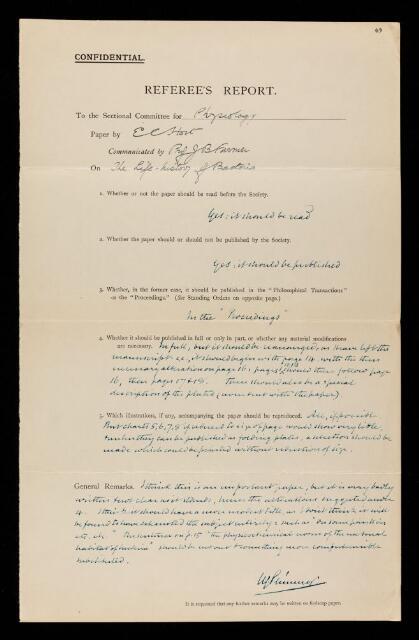 49
CONFIDENTIAL.
REFEREE'S REPORT.
To the Sectional Committee for Physiology
Paper by E C Hort
Communicated by Prof J B Farmer
On The Life-history of Bacteria
1. Whether or not the paper should be read before the Society.
Yes; it should be read
2. Whether the paper should or should not be published by the Society.
Yes; it should be published
3. Whether, in the former case, it should be published in the "Philosophical Transactions"
or the "Proceedings." (See Standing Orders on opposite page.)
In the "Proceedings"
4. Whether it should be published in full or only in part, or whether any material modifications
are necessary. In full, but it should be rearranged, as I have left the
manuscript i.e., it should begin with page 14 with the then
necessary alteration on page 16; pages should then follow page
16, then pages 17 & 18. There should also be a general
description of the plates (even sent with the paper)
5. Which illustrations, if any, accompanying the paper should be reproduced. All, if possible
But charts 5, 6, 7, 8 if reduced to size of page would show very little,
unless they can be published as folding plates, a selection should be
made which could be printed without reduction of size.
General Remarks. I think this is an important paper, but it is very badly
written & not clear as it stands, hence the alterations suggested under
4. I think it should have a more modest title, as I don't think it will
be found to have exhausted the subject entirely: such as "On some points in
etc. etc." The sentence on p. 15 "the physicochemical norm of the national
habitat of bacteria" should be cut out & something more comprehensible
substituted.
It is requested that any further remarks may be written on foolscap paper.